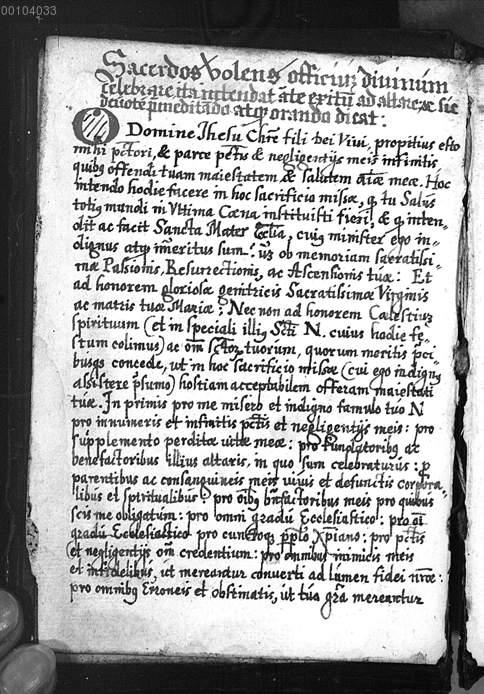 00104033
Sacerdos volens officiuz divinum
celebrare ita intendat ãte exitũ ad altare, ac sic
devote p̃meditãdo atqꝫ orando dicat:
O Domine Jhesu Chrē fili dei Vivi, propitius esto
mihi pctori, & parce pctis & negligentijs meis infinitis
quibꝰ offendi tuam maiestatem & salutem aīæ meæ. Hoc
intendo hodie facere in hoc sacrificio missæ, q tu Salus
totiꝰ mundi in Vltima Cœna instituisti fieri, & q inten-
dit ac facit Sancta Mater Ecclīa, cuiꝰ minister ego in-
dignus atqꝫ immeritus sum: ob memoriam sacratissi-
mæ Passionis, Resurrectionis, ac Ascensionis tuæ: Et
ad honorem gloriosæ genitricis Sacratissimæ Virginis
ac matris tuæ Mariæ: Nec non ad honorem Cælestiuz
spirituum (et in speciali illiꝰ Scti N. cuius hodie fe-
stum colimus) ac oīm sctorꝫ tuorum, quorum meritis pci-
busqꝫ concede, ut in hoc sacrificio missæ (cui ego indignꝰ
assistere p̃sumo) hostiam acceptabilem offeram maiestati
tuæ. In primis pro me misero et indigno famulo tuo N
pro innumeris et infinitis pctis et negligentijs meis: pro
supplemento perditæ vitæ meæ: pro fundatoribꝰ ac
benefactoribus illius altaris, in quo sum celebraturus: p
parentibus ac consanguineis meis vivis et defunctis corpora-
libus et spiritualibus: pro oībꝰ bñfactoribus meis pro quibus
scis me obligatum: pro omni gradu Ecclesiastico: pro oī
gradu Ecclesiastico pro cunctoqꝫ pplo Xpiano: pro pctis
et negligentijs oīm credentium: pro omnibus inimicis meis
et infidelibus, ut mereantur converti ad lumen fidei nr̃æ:
pro omnibꝰ Erroneis et obstinatis, ut tua gr̃a mereantur